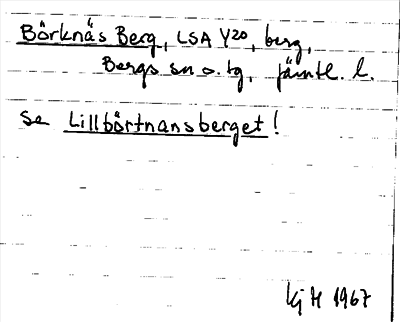 Börknäs Berg, LSA Y20, berg,
Bergs sn o. tg, Jämtl. l.
Se Lillbörtnansberget!
Kj H 1967